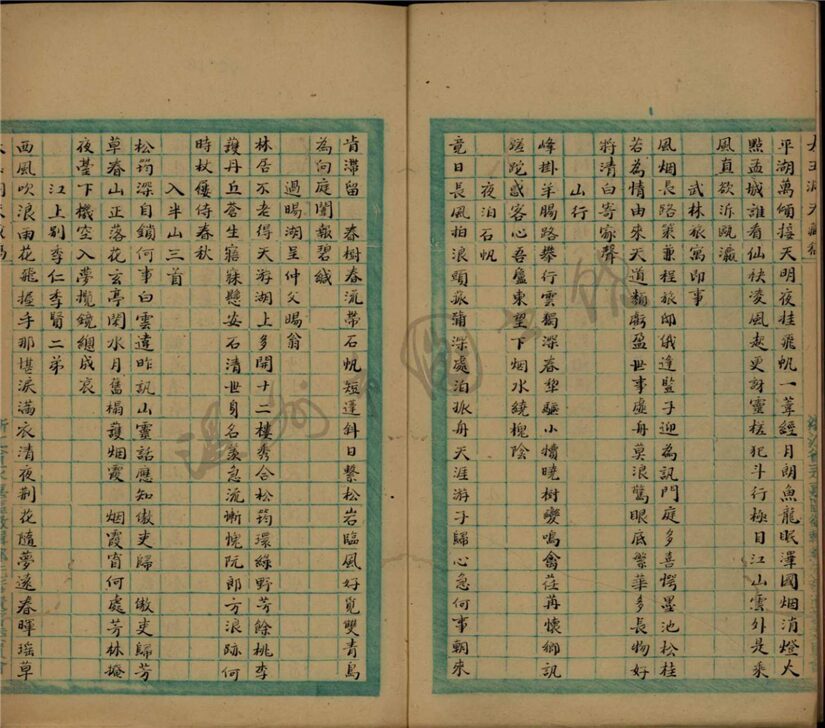 平湖萬傾接天明夜挂飛帆一葦經月朗魚龍眠澤國烟消燈火
點孟城誰看仙袂淩風起更訝靈槎犯斗行極目江山雲外是乘
風直欲泝瓯瀛
武林旅寓即事
風烟長路策兼程旅邸俄逢監子迎為訊門庭多喜愕墨池松桂
若為情由來天道麵虧盈世事虛舟莫浪驚眼底繁華多長物好
將清白寄家聲
山行
峰掛羊腸路攀行雲獨深春犂驅小犢曉樹變鳴禽荏苒懷鄉訊
蹉跎惑客心吾廬東望下烟水繞槐陰
夜泊石帆
竟日長風拍浪頭菰蒲深處泊孤舟天涯游子歸心急何事朝來
肯滯留　春樹春流帶石帆短蓬斜日繫松岩臨風好覓雙青鳥
為向庭闈報碧緘
過暘湖呈仲父暘翁
林居不老得天游湖上多開十二樓秀合松筠環綠野芳餘桃李
護丹丘蒼生寤寐懸安石清世身名羨急流慚愧阮郎方浪跡何
時杖僂侍春秋
入半山三首
松筠深自鎖何事白雲違昨訊山靈話應知傲吏歸　傲吏歸芳
草春山正落花玄亭閑水月舊榻護烟霞　烟霞宵何處芳林掩
夜臺下機空入夢攬鏡總成哀
江上別季仁季賢二弟
西風吹浪雨花飛握手那堪淚滿衣清夜荆花隨夢遠春暉瑤草